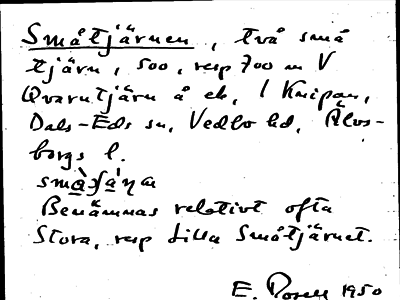 Småtjärnen, två små
tjärn, 500, resp 700 m V
Qvarntjärn å ek. l Knipan,
Dals-Eds sn, Vedbo hd, Älvs-
borgs l.
Benämnas relativt ofta
Stora, resp Lilla Småtjärnet.
E. 1950